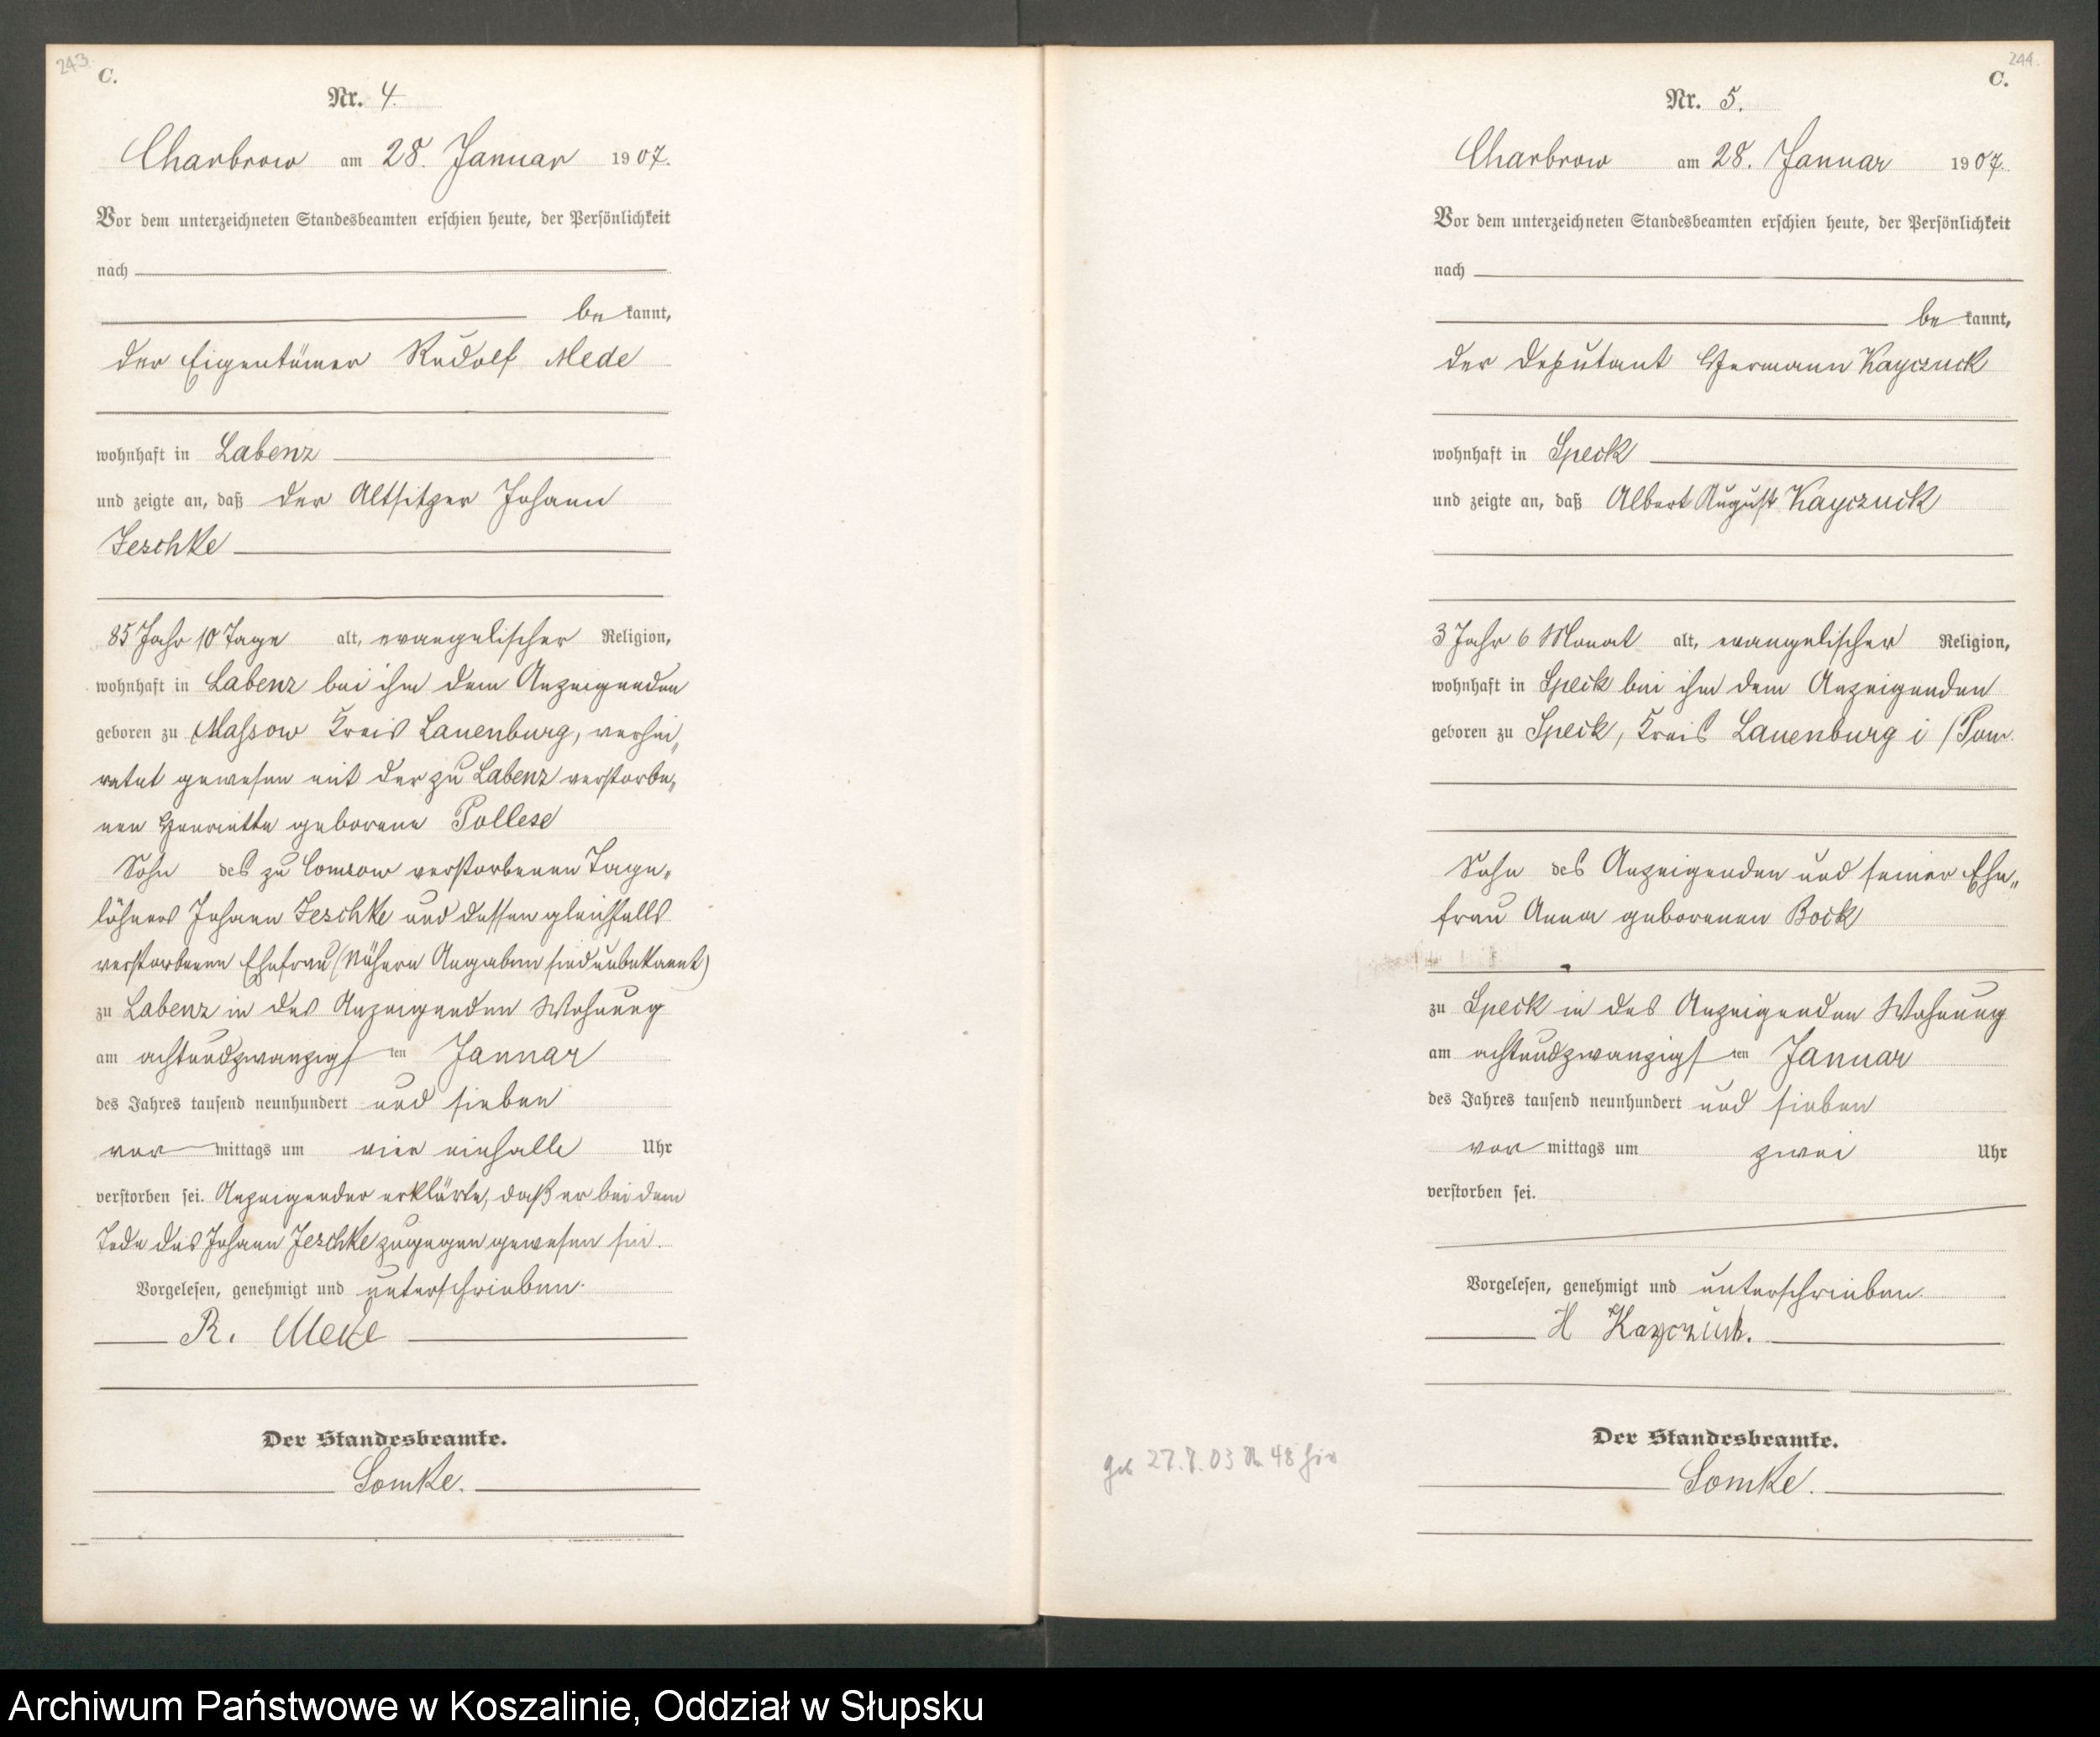 243.
C.
Nr. 4.
Charbrow am 28. Januar 1907.
Vor dem unterzeichneten Standesbeamten erschien heute, der Persönlichkeit
nach
be kannt,
der Eigentümer Rudolf Mede
wohnhaft in Labenz
und zeigte an, daß der Altsitzer Johann
Jeschke
85 Jahr 10 Tage alt, evangelischer Religion,
wohnhaft in Labenz bei ihm dem Anzeigenden
geboren zu Massow Kreis Lauenburg, verhei„
ratet gewesen mit der zu Labenz verstorbe„
nen Henriette geborene Pollese
Sohn des zu Comsow verstorbenen Tage„
löhners Johann Jeschke und dessen gleichfalls
verstorbenen Ehefrau (Nähere Angaben sind unbekannt)
zu Labenz in des Anzeigenden Wohnung
am achtundzwanzigs ten Januar
des Jahres tausend neunhundert und sieben
vor mittags um vier einhalb Uhr
verstorben sei. Anzeigender erklärte, daß er bei dem
Tode des Johann Jeschke zugegen gewesen sei.
Vorgelesen, genehmigt und unterschrieben.
R. Mede
Der Standesbeamte.
Somke.
244.
C.
Nr. 5.
Charbrow am 28. Januar 1907.
Vor dem unterzeichneten Standesbeamten erschien heute, der Persönlichkeit
nach
be kannt,
der Deputant Hermann Kayczuck
wohnhaft in Speck
und zeigte an, daß Albert August Kayczuck
3 Jahr 6 Monat alt, evangelischer Religion,
wohnhaft in Speck bei ihm dem Anzeigenden
geboren zu Speck, Kreis Lauenburg i/Pom.
Sohn des Anzeigenden und seiner Ehe„
frau Anna geborenen Bock
zu Speck in des Anzeigenden Wohnung
am achtundzwanzigs ten Januar
des Jahres tausend neunhundert und sieben
vor mittags um zwei Uhr
verstorben sei.
Vorgelesen, genehmigt und unterschrieben.
H Kayczuck.
Der Standesbeamte.
Somke.
geb 27.7.03 48 hier
Archiwum Państwowe w Koszalinie, Oddział w Słupsku